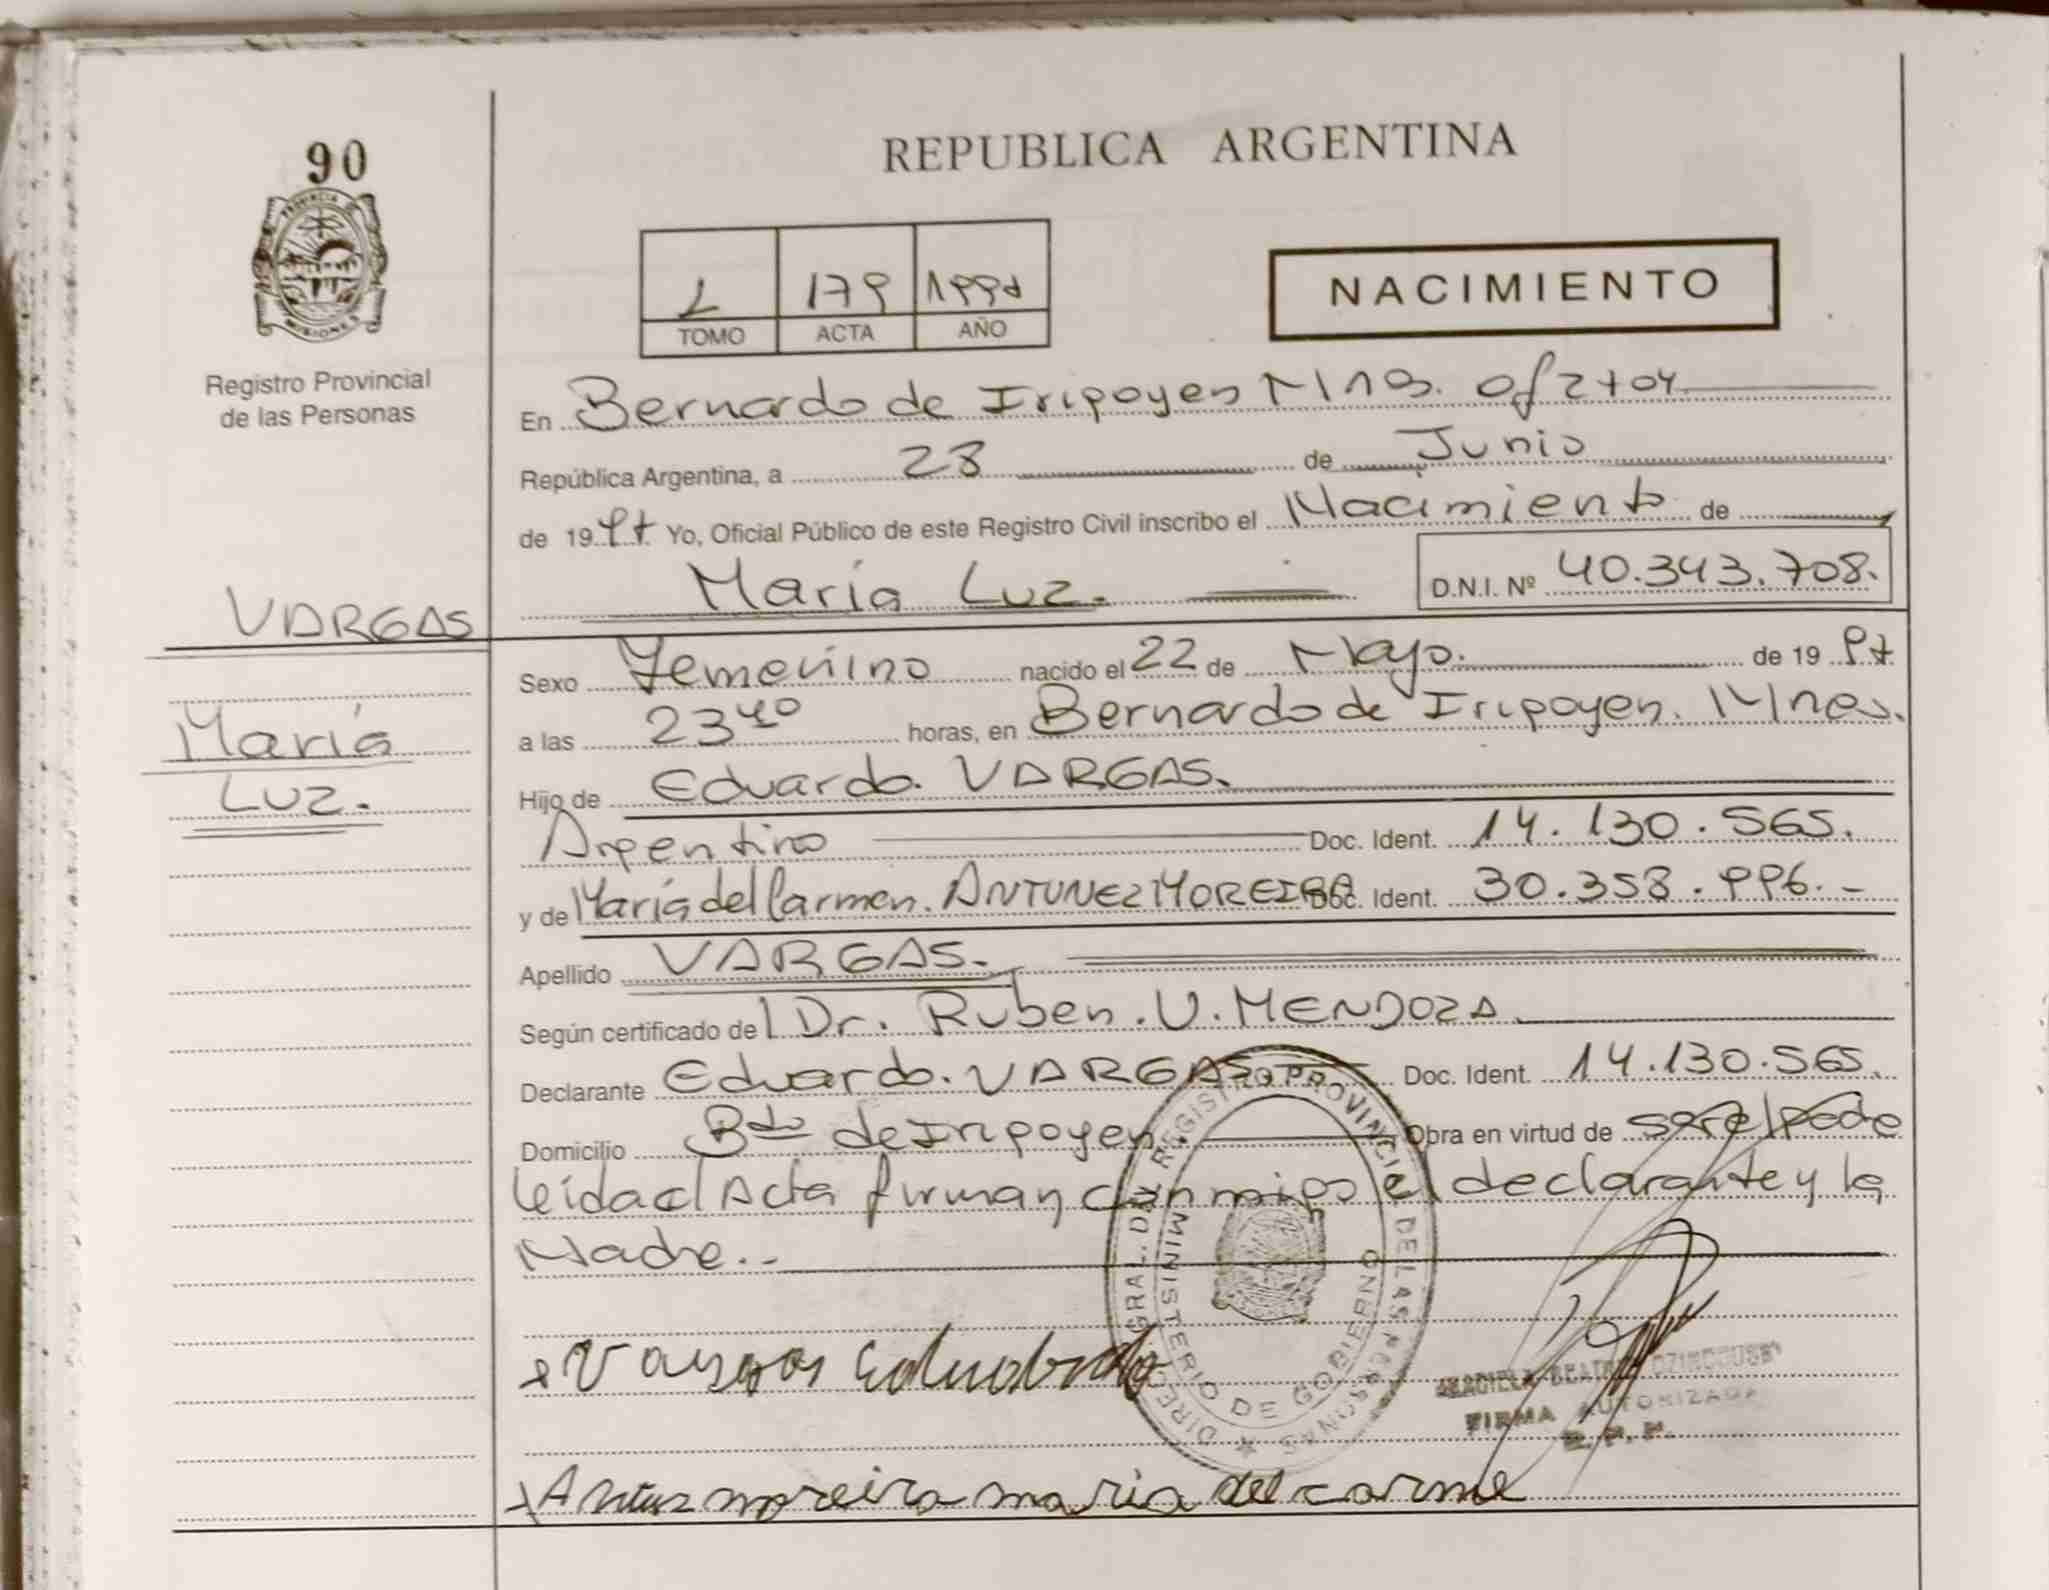 90
PROVINCIA DE
MISIONES
Registro Provincial
de las Personas
REPUBLICA ARGENTINA
I 179 1997
TOMO ACTA AÑO
NACIMIENTO
En Bernardo de Irigoyen Mnes. of 2704
República Argentina, a 28 de Junio
de 1997 Yo, Oficial Público de este Registro Civil inscribo el Nacimiento de
María Luz. D.N.I. Nº 40.343.708.
VARGAS
María
Luz.
Sexo Femenino nacido el 22 de Mayo. de 1997
a las 23 40 horas, en Bernardo de Irigoyen. Mnes.
Hijo de Eduardo. VARGAS.
Argentino Doc. Ident. 14.130.565.
y de María del Carmen. ANTUNEZ MOREIRA Doc. Ident. 30.358.996.-
Apellido VARGAS.
Según certificado del Dr. Ruben. U. MENDOZA
Declarante Eduardo. VARGAS Doc. Ident. 14.130.565.
Domicilio Bdo de Irigoyen. Obra en virtud de ser el padre
leída el Acta firman conmigo el declarante y la
Madre.-
DIRECC. GRAL. DEL REGISTRO PROVINCIAL DE LAS PERSONAS
MINISTERIO DE GOBIERNO
Vargas Eduardo
FIRMA AUTORIZADA
R. P. P.
Antunz moreira maria del carme